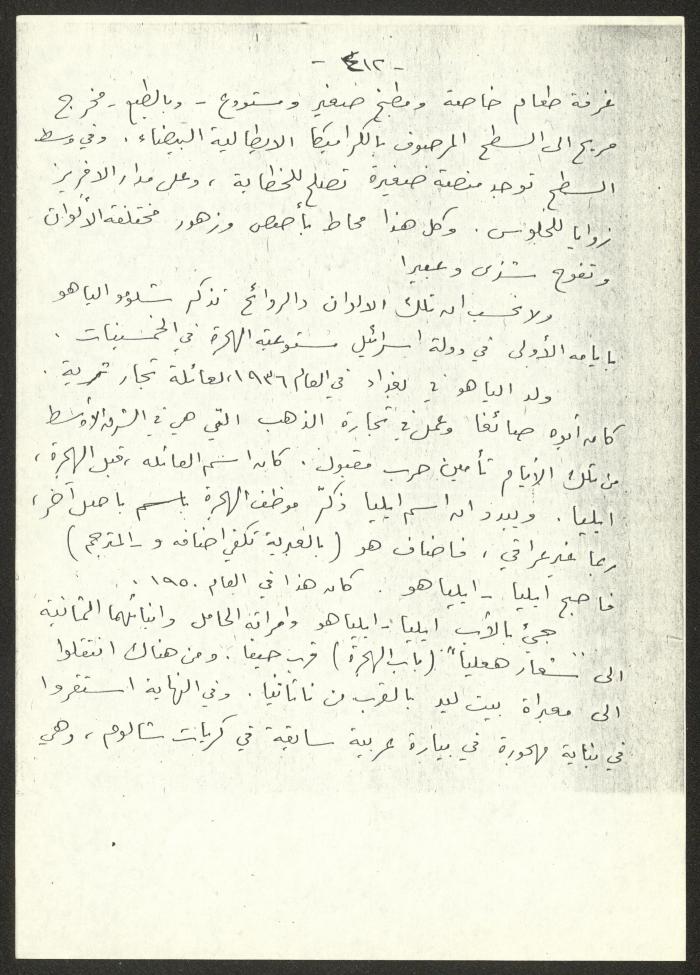 - ٤١٢ -
غرفة طعام خاصة ومطبخ صغير ومستودع - وبالطبع - مخرج
مريح الى السطح المرصوف بالكراميكا الايطالية البيضاء. وفي وسط
السطح توجد منصة صغيرة تصلح للخطابة ، وعلى مدار الافريز
زوايا للجلوس. وكل هذا محاط بأصص وزهور مختلفة الألوان
وتفوح شذى وعبيرا
ولا نحسب ان تلك الالوان والروائح تذكر شلومو الياهو
بايامه الأولى في دولة اسرائيل مستوعبة الهجرة في الخمسينات .
ولد الياهو في بغداد في العام ١٩٣٦، لعائلة تجار ثرية .
كان أبوه صائغا وعمل في تجارة الذهب التي هي في الشرق الأوسط
من تلك الأيام تأمين حرب مقبول . كان اسم العائله ، قبل الهجرة ،
ايليا . ويبدو ان اسم ايليا ذكّر موظف الهجرة باسم باصل آخر ،
ربما غير عراقي ، فاضاف هو ( بالعبرية تكفي اضافه و - المترجم )
فاصبح ايليا - ايلياهو . كان هذا في العام ١٩٥٠ .
جيئ بالأب ايليا - ايلياهو وامرأته الحامل وابنائهما الثمانية
الى "شعار هعليا" ( باب الهجرة ) قرب حيفا . ومن هناك انتقلوا
الى معبراة بيت ليد بالقرب من ناتانيا . وفي النهاية استقروا
في بناية مهجورة في بيارة عربية سابقة في كريات شالوم ، وهي